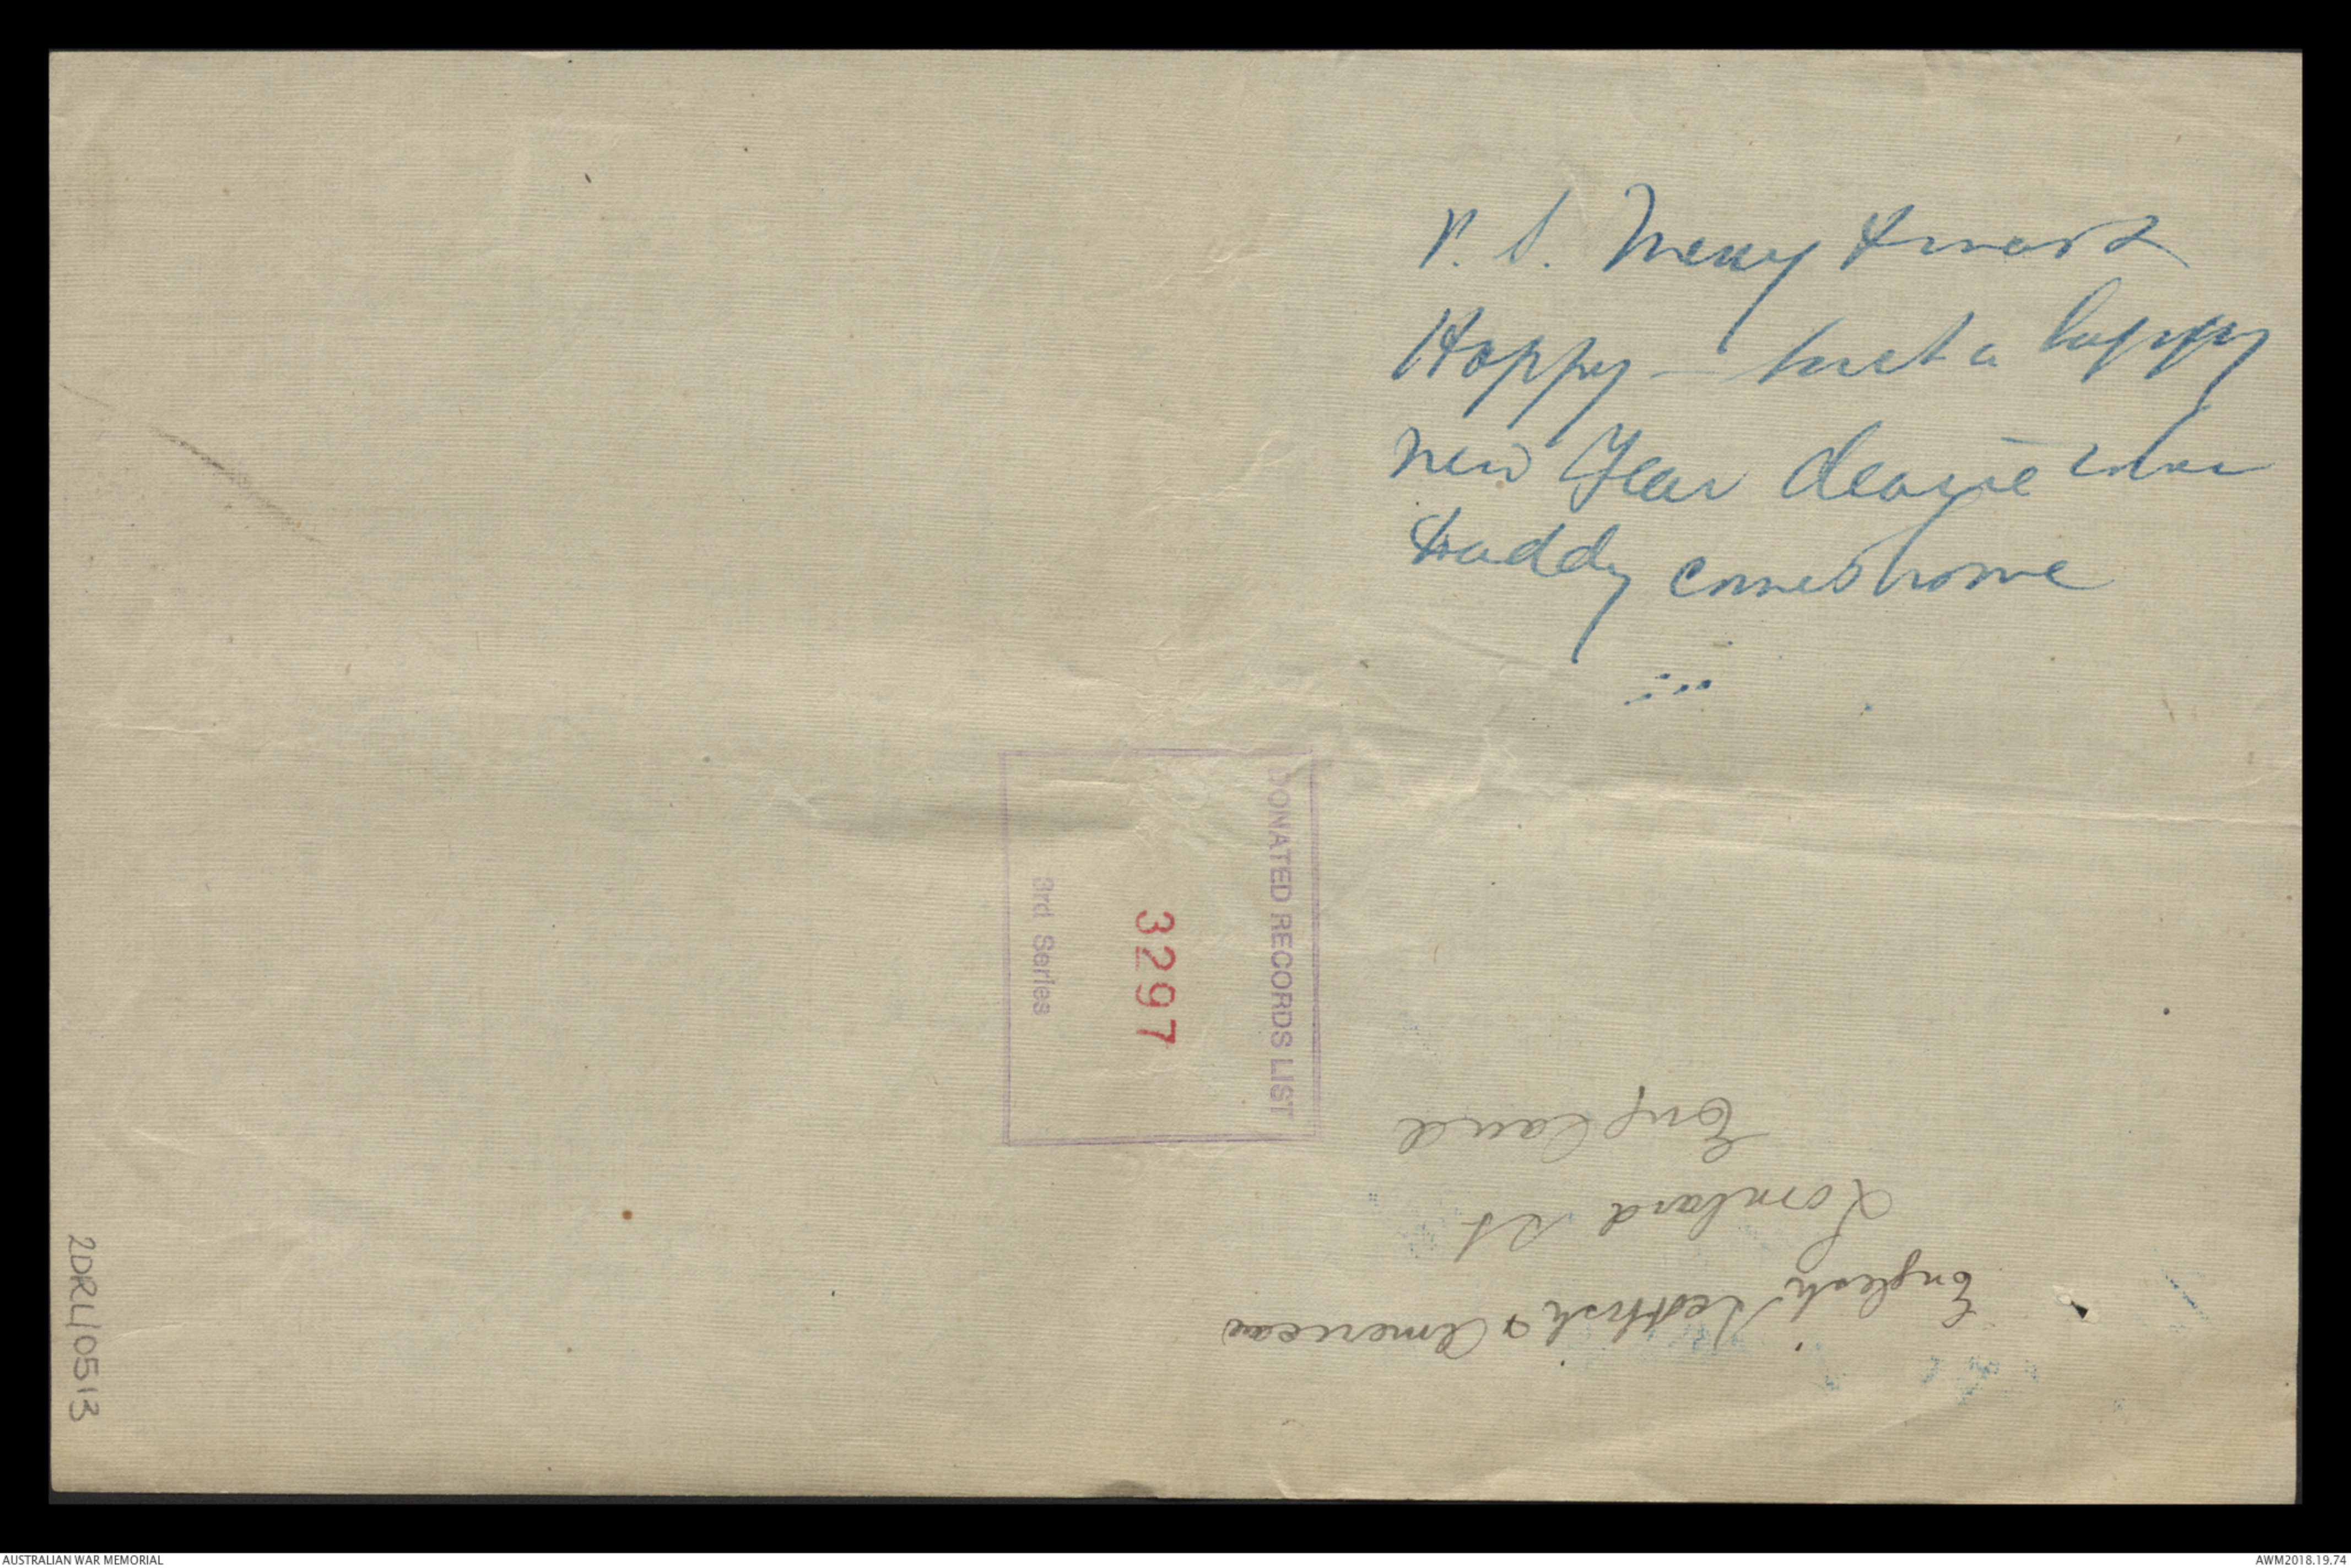 P. S. Merry Xmas &
Happy — but a happy
New Year dearie when
Daddy comes home
DONATED RECORDS LIST
3297
3rd Series
English, Scottish & American
Lombard St
England
2DRL/0513
AUSTRALIAN WAR MEMORIAL
AWM2018.19.74